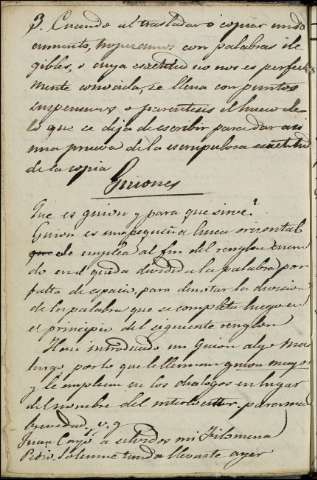 3. Cuando al trasladar o copiar un do
cumento, tropezamos con palabras ile
gibles, o cuya exactitud no nos es perfec
mente conocida, se llena con puntos
suspensivos o parentesis el hueco de
lo que se deja de escribir para dar asi
una prueva de la escrupulosa exactitud
de la copia
Guiones
Que es guion y para que sirve?
Guion es una pequeña linea orisontal
que se emplea al fin del renglon cuan
do en el queda dividida la palabra por
falta de espacio, para denotar la division
de la palabra que se completa luego en
el principio del siguiente renglon
Han introducido un Guion algo mas
largo por lo que le llaman guion mayor
y le emplean en los dialogos en lugar
del nombre del interlocutor, para mas
v. g
Juan Cayó a mi Filomena
Pedro. Solemne tunda llevaste ayer